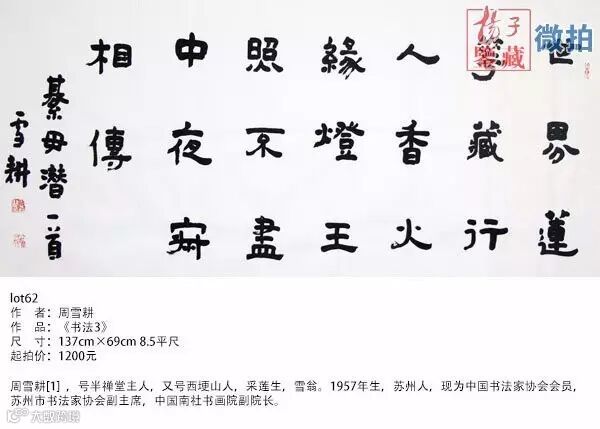 楊子
鑒藏
微拍
世界蓮
藏行
人香火
緣燈王
照不盡
中夜寂
相傳
綦毋潛一首
雪耕
lot62
作 者：周雪耕
作 品：《书法3》
尺 寸：137cm×69cm 8.5平尺
起拍价：1200元
周雪耕[1]，号半禅堂主人，又号西埂山人，采莲生，雪翁。1957年生，苏州人，现为中国书法家协会会员，
苏州市书法家协会副主席，中国南社书画院副院长。